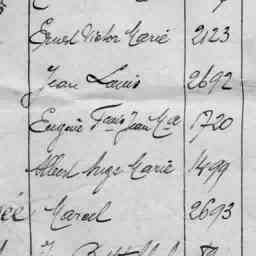 Ernest Victor Marie 2123
Jean Louis 2692
Eugène Fçois Jean Mie 1720
Albert Ange Marie 1499
ée Marcel 2693